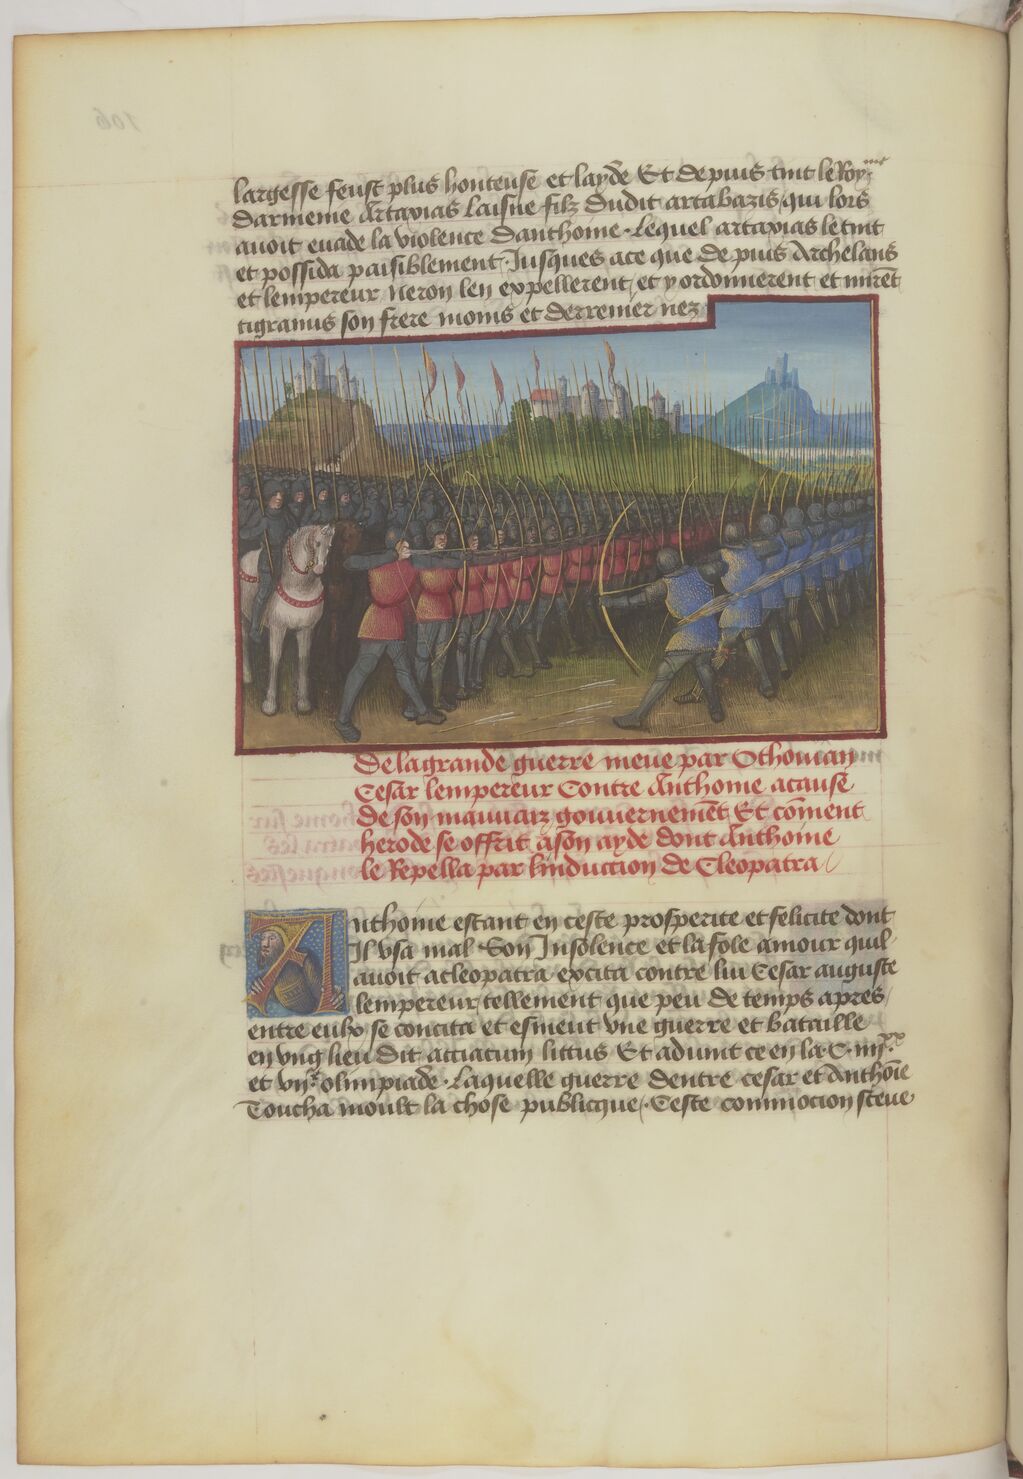 largesse feust plus honteuse et layde Et depuis tint le Roy.me
darmenie Artaxias laisne filz dudit artabazis, qui lors
auoit euade la violence danthoine. Lequel artaxias le tint
et possida paisiblement. Jusques ace que depuis Archelaus
et lempereur neron len expellerent, et y ordonnerent et mirẽt
tigranus son frere moins et derrenier nez
De la grande guerre meue par Othouian
Cesar lempereur Contre Anthoine a cause
de son mauuaiz gouuernemẽt Et cõment
herode se offrit a son ayde dont Anthoine
le Repella par linduction de Cleopatra
Anthoine estant en ceste prosperite et felicite dont
Il vsa mal Son Insolence et la fole amour quil
auoit a cleopatra excita contre lui Cesar auguste
lempereur, tellement que peu de temps apres
entre eulx se concita et esmeut vne guerre et bataille
en vng lieu dit acciatum littus Et aduint ce en la C. iiij.xx
et vij.e olimpiade. Laquelle guerre dentre cesar et Anthoĩe
Toucha moult la chose publicque, Ceste commocion